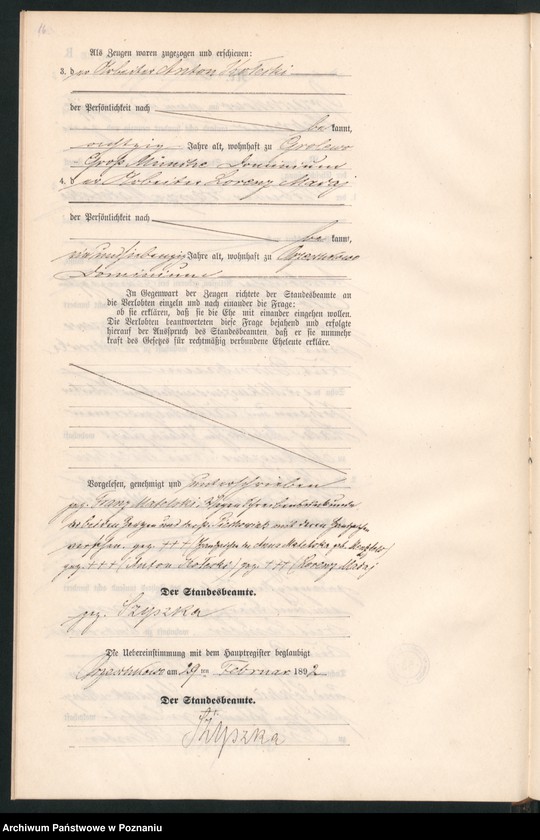 16
Als Zeugen waren zugezogen und erschienen:
3. der Arbeiter Anton
der Persönlichkeit nach
bekannt,
achtzig Jahre alt, wohnhaft zu
Groß Dominium
4. der Arbeiter Lorenz
der Persönlichkeit nach
bekannt,
Jahre alt, wohnhaft zu
Dominium
In Gegenwart der Zeugen richtete der Standesbeamte an
die Verlobten einzeln und nach einander die Frage:
ob sie erklären, daß sie die Ehe mit einander eingehen wollen.
Die Verlobten beantworteten diese Frage bejahend und erfolgte
hierauf der Ausspruch des Standesbeamten, daß er sie nunmehr
kraft des Gesetzes für rechtmäßig verbundene Eheleute erkläre.
Vorgelesen, genehmigt und unterschrieben
gez. Franz Matelski. Wegen Schreibensunkunde
der beiden Zeugen und mit deren Handzeichen
versehen. gez. +++ Handzeichen der Matelska geb.
gez. +++ (Anton gez. +++ (Lorenz
Der Standesbeamte.
gez. Szyszka
Die Uebereinstimmung mit dem Hauptregister beglaubigt
am 29 ten Februar 1892
Der Standesbeamte.
Szyszka
Archiwum Państwowe w Poznaniu